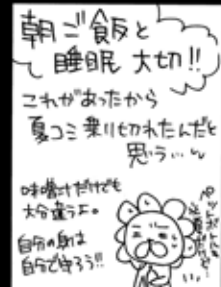 朝ご飯と
睡眠 大切!!
これがあったから
夏コミ乗り切れたんだと
思う…
味噌汁だけでも
大分違うよ。
自分の身は
自分で守ろう!!
ペットボトルも
必要だけど…